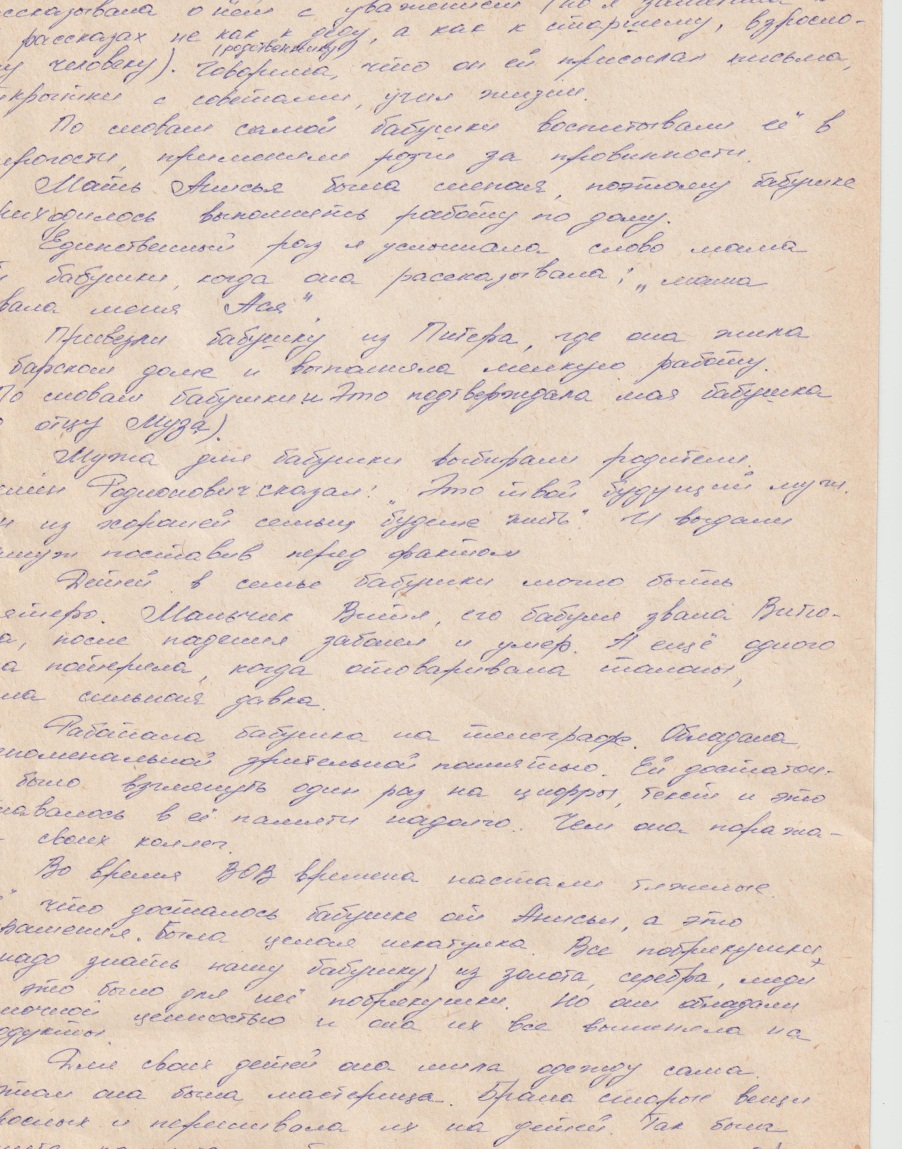 рассказывала о нём с уважением (но я
рассказах не как к деду, а как к старшему, взросло-
(родственнику)
му человеку). Говорила, что он ей присылал письма,
открытки с советами, учил жизни.
По словам самой бабушки воспитывали её в
строгости, применяли розги за провинности.
Мать Анисья была слепая, поэтому бабушке
приходилось выполнять работу по дому.
Единственный раз я услышала слово мама
бабушки, когда она рассказывала: „мама
звала меня Ася"
Привезли бабушку из Питера, где она жила
барском доме и выполняла мелкую работу.
По словам бабушки и это подтверждала моя бабушка
отцу Муза).
Мужа для бабушки выбирали родители.
Родионович сказал: „Это твой будущий муж.
из хорошей семьи будете жить". И выдали
замуж поставив перед фактом
Детей в семье бабушки могло быть
Мальчик Витя, его бабуля звала Витю-
, после падения заболел и умер. А ещё одного
потеряла, когда отоваривала талоны,
была сильная давка.
Работала бабушка на телеграфе. Обладала
феноменальной зрительной памятью. Ей достаточ-
было взглянуть один раз на цифры, текст и это
оставалось в её памяти надолго. Чем она поража-
своих коллег.
Во время ВОВ времена настали тяжёлые
что досталось бабушке от Анисьи, а это
украшения. Была целая шкатулка. Все побрякушки
надо знать нашу бабушку) из золота, серебра, меди
это было для неё побрякушки. Но они обладали
ценностью и она их все выменяла на
продукты.
Для своих детей она шила одежду сама.
этом она была мастерица. Брала старые вещи
взрослых и перешивала их на детей. Так была